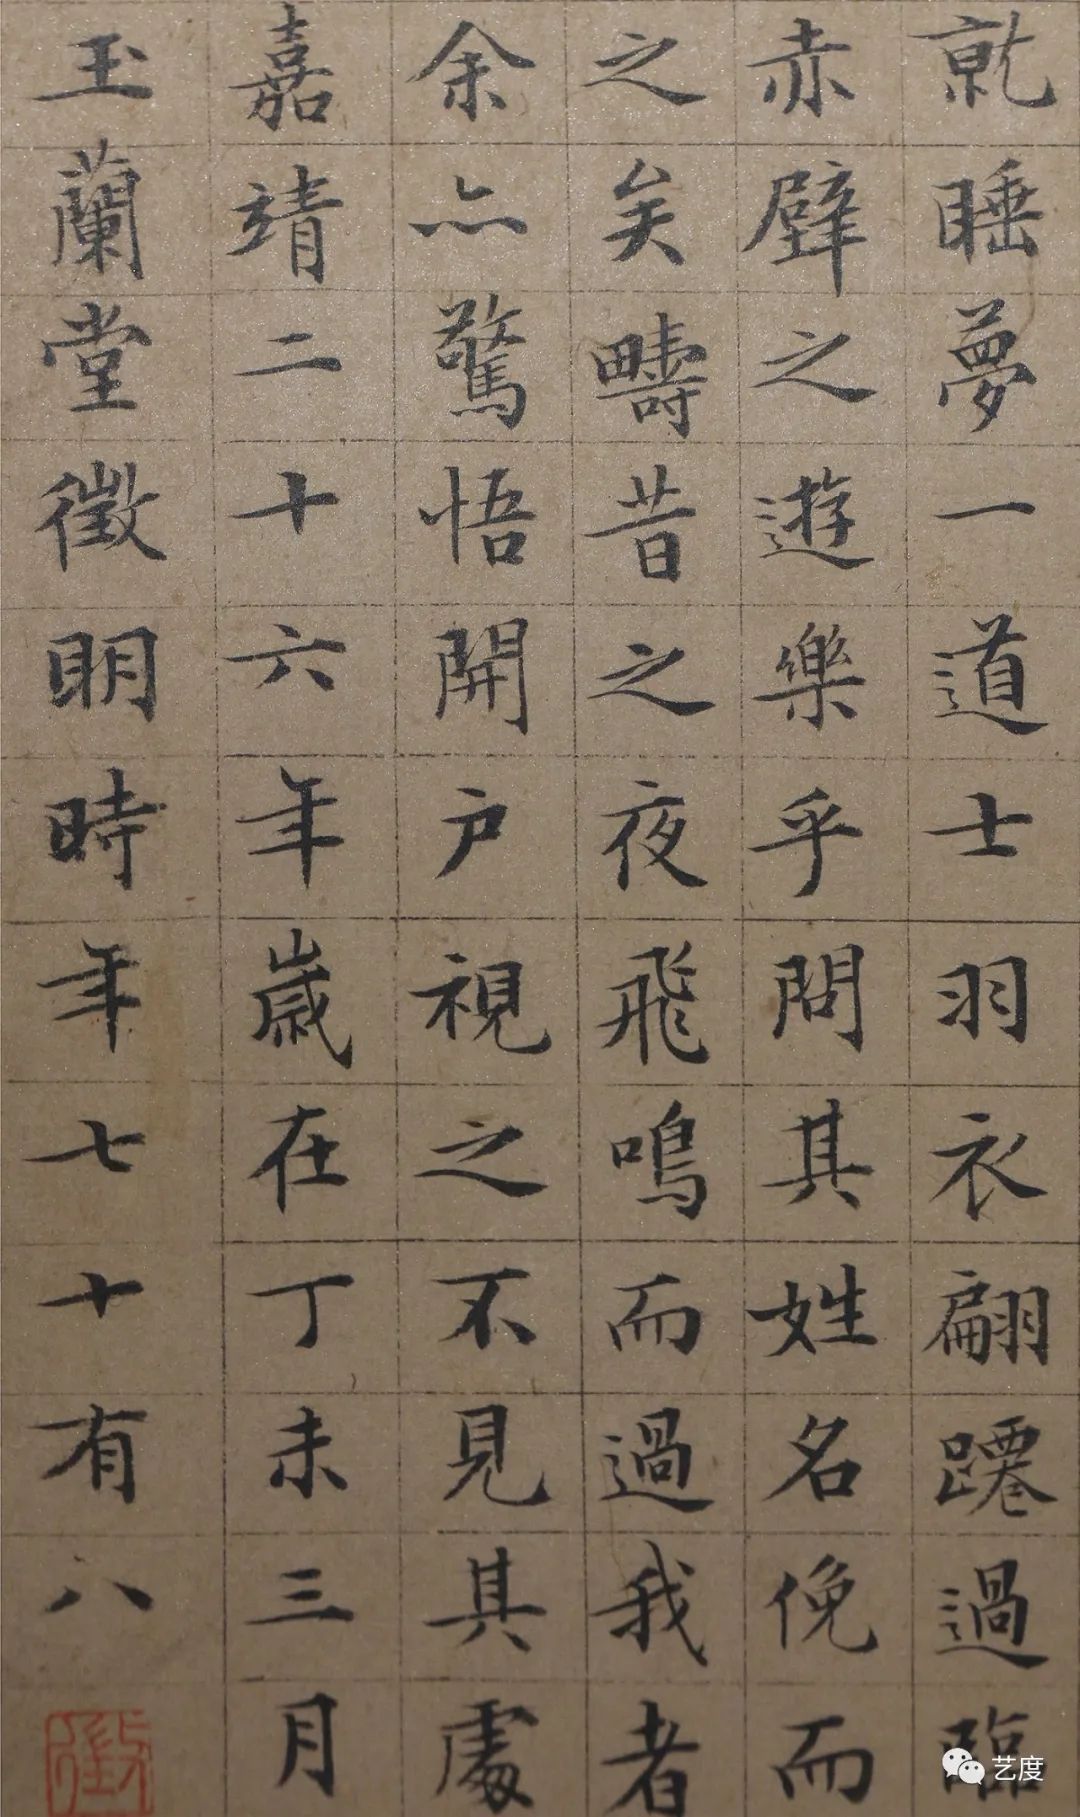 就睡夢一道士羽衣翩躚過臨
赤壁之遊樂乎問其姓名俛而
之矣疇昔之夜飛鳴而過我者
余亦驚悟開戶視之不見其處
嘉靖二十六年歲在丁未三月
玉蘭堂徵明時年七十有八
艺度